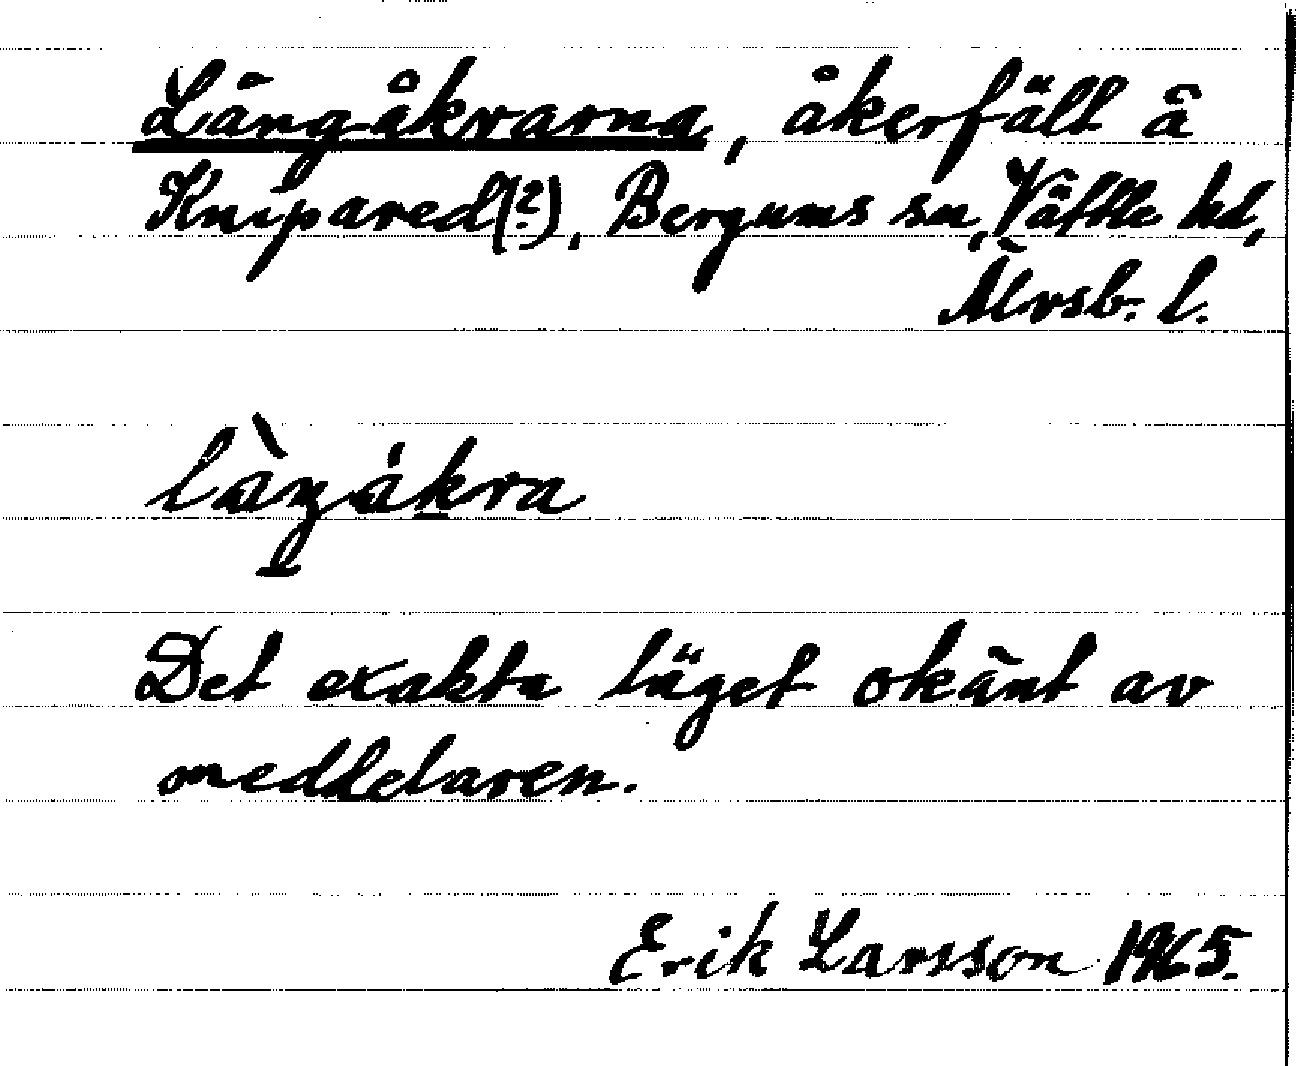 Långåkrarna, åkerfält å
Knipared(?), Bergums sn, Vättle hd,
Älvsb. l.
låŋåkra
Det exakta läget okänt av
meddelaren.
Erik Larsson 1965.